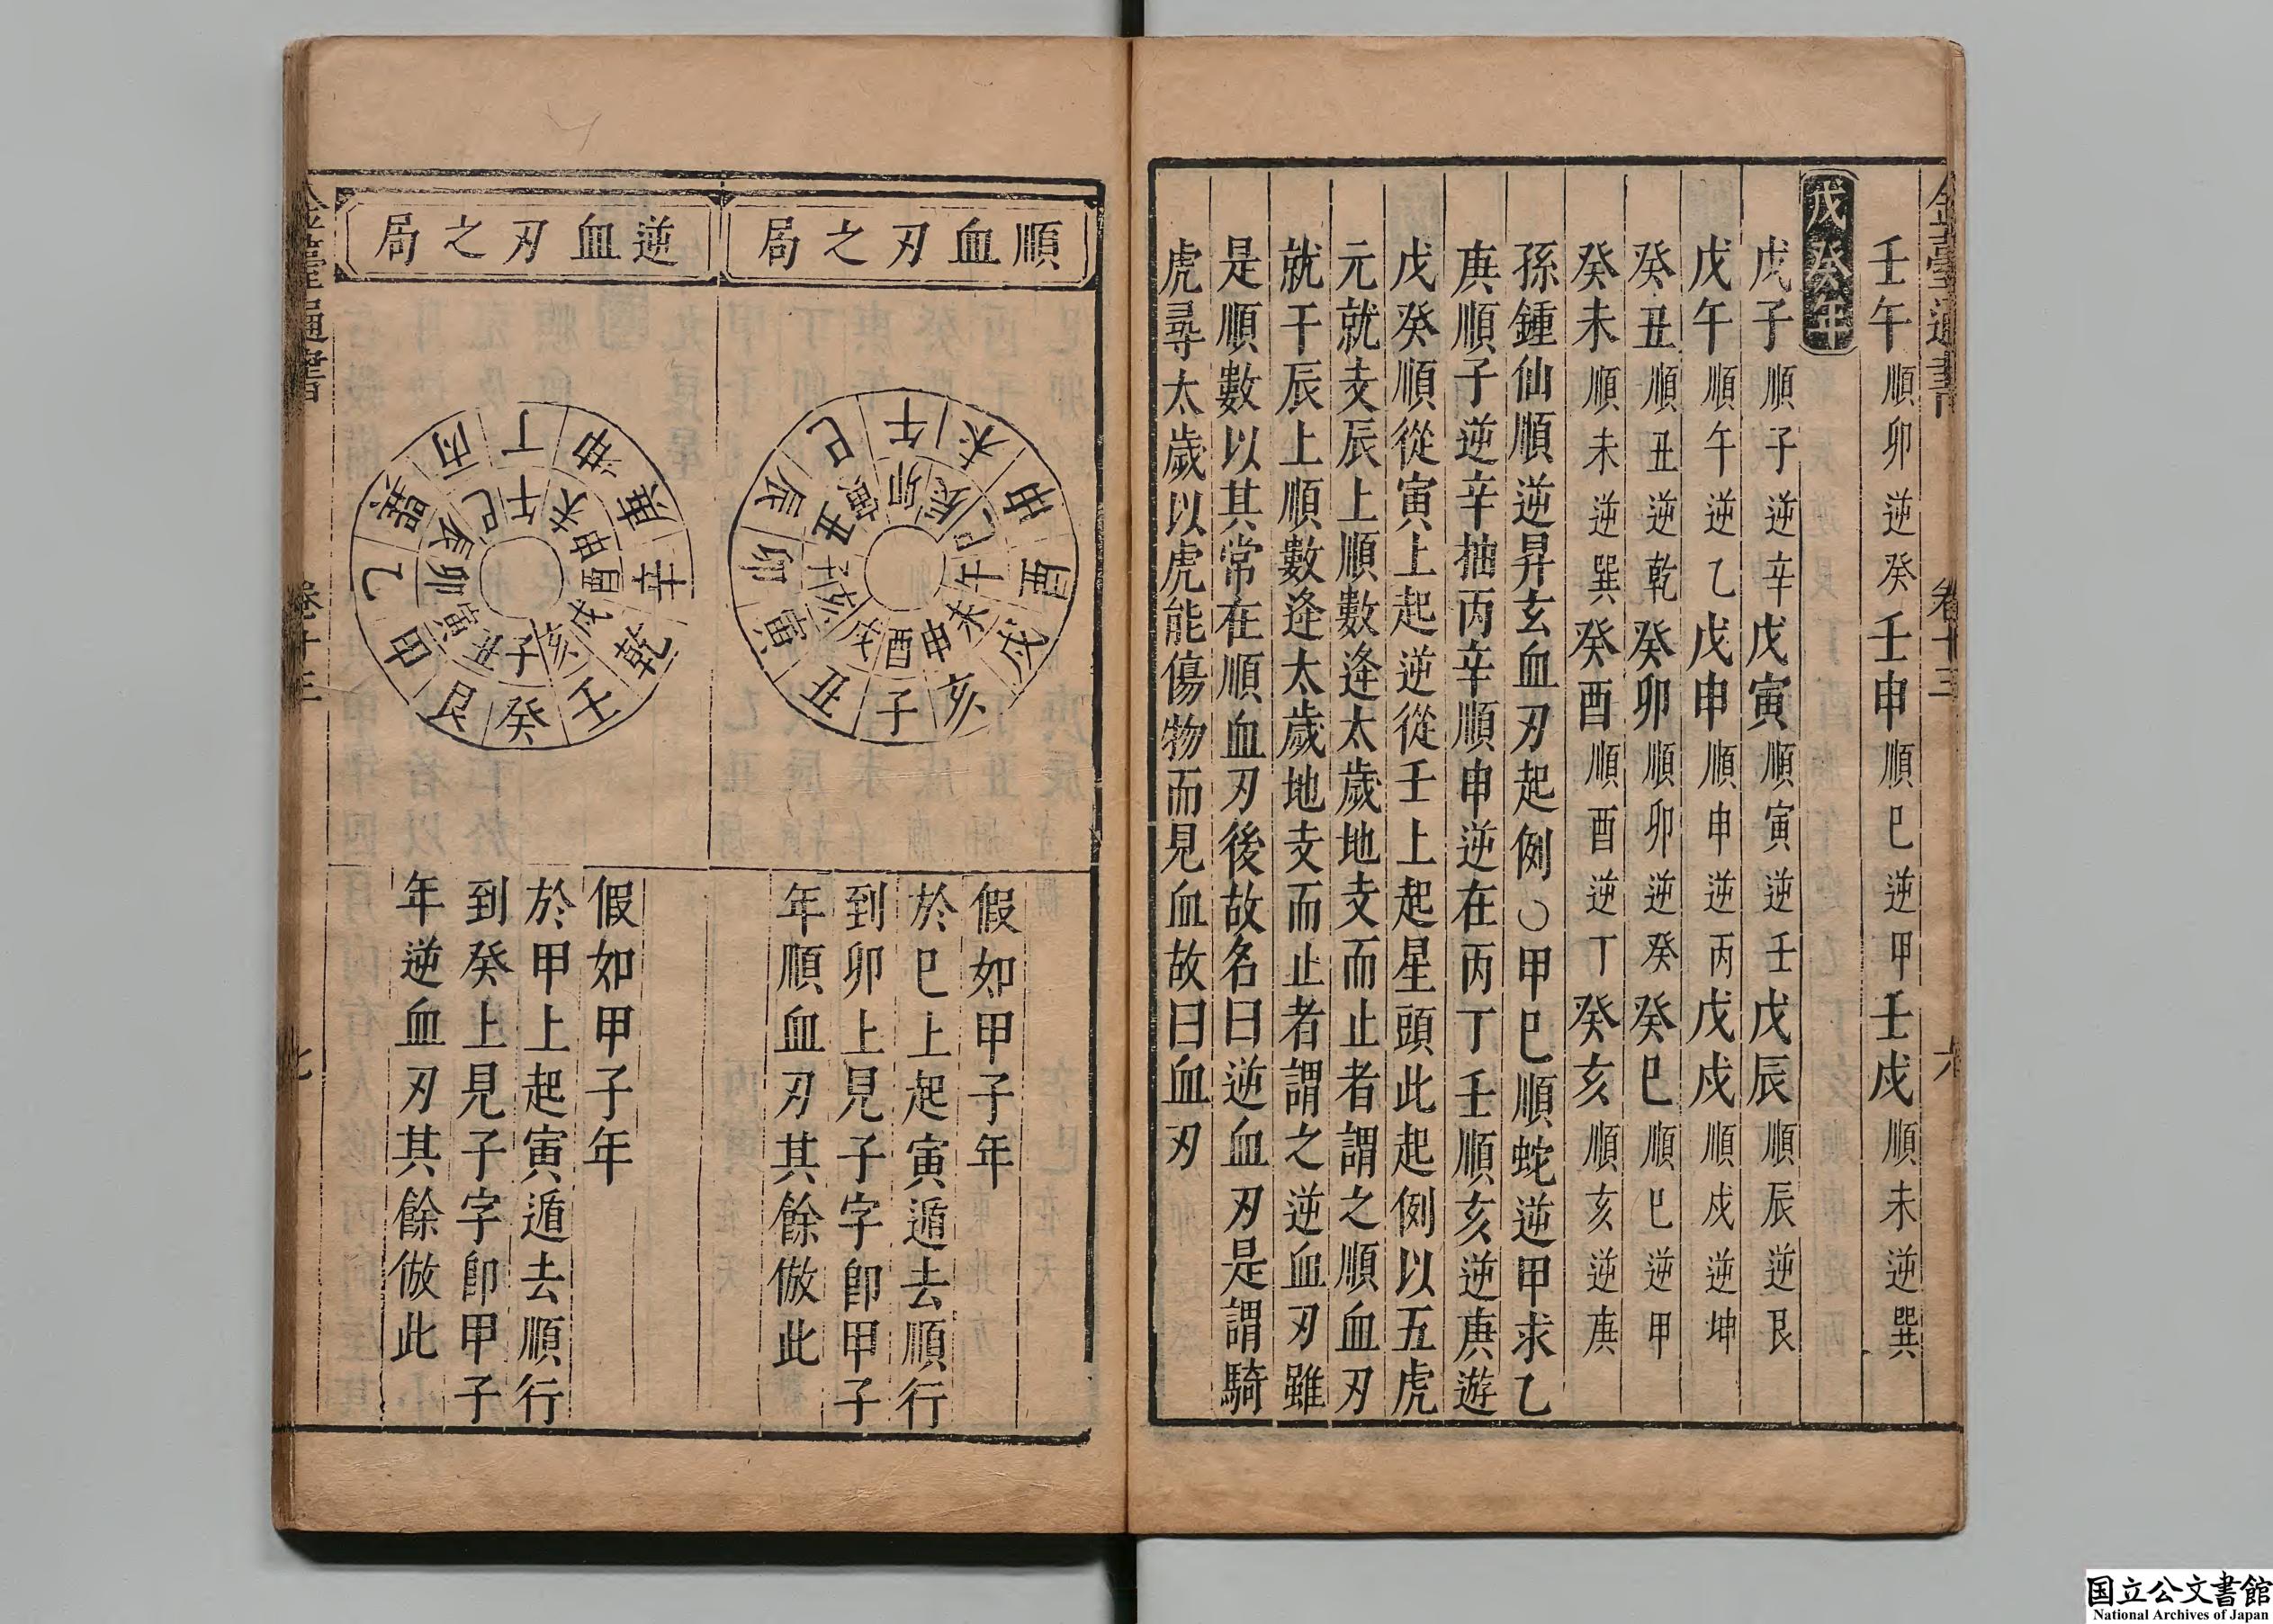 金臺通書 卷十三 六
壬午順卯逆癸壬申順巳逆甲壬戌順未逆巽
戊癸年
戊子順子逆辛戊寅順寅逆壬戊辰順辰逆艮
戊午順午逆乙戊申順申逆丙戊戌順戌逆坤
癸丑順丑逆乾癸卯順卯逆癸癸巳順巳逆甲
癸未順未逆巽癸酉順酉逆丁癸亥順亥逆庚
孫鍾仙順逆昇玄血刃起例○甲巳順蛇逆甲求乙
庚順子逆辛抽丙辛順申逆在丙丁壬順亥逆庚遊
戊癸順從寅上起逆從壬上起星頭此起例以五虎
元就支辰上順數逢太歲地支而止者謂之順血刃
就干辰上順數逢太歲地支而止者謂之逆血刃雖
是順數以其常在順血刃後故名曰逆血刃是謂騎
虎尋太歲以虎能傷物而見血故曰血刃
順血刃之局
午未坤酉戌亥子丑寅卯辰巳
卯辰巳午未申酉戌亥子丑寅
假如甲子年
於巳上起寅遁去順行
到卯上見子字卽甲子
年順血刃其餘倣此
逆血刃之局
丁坤庚辛乾壬癸艮甲乙巽丙
午未申酉戌亥子丑寅卯辰巳
假如甲子年
於甲上起寅遁去順行
到癸上見子字卽甲子
年逆血刃其餘倣此
金臺通書 卷十三 七
国立公文書館
National Archives of Japan